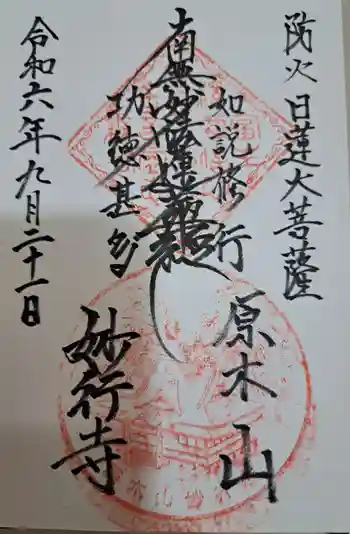 防火 日蓮大菩薩
如説修行
南無妙法蓮華経
功徳甚多
令和六年九月二十一日
原木山
妙行寺